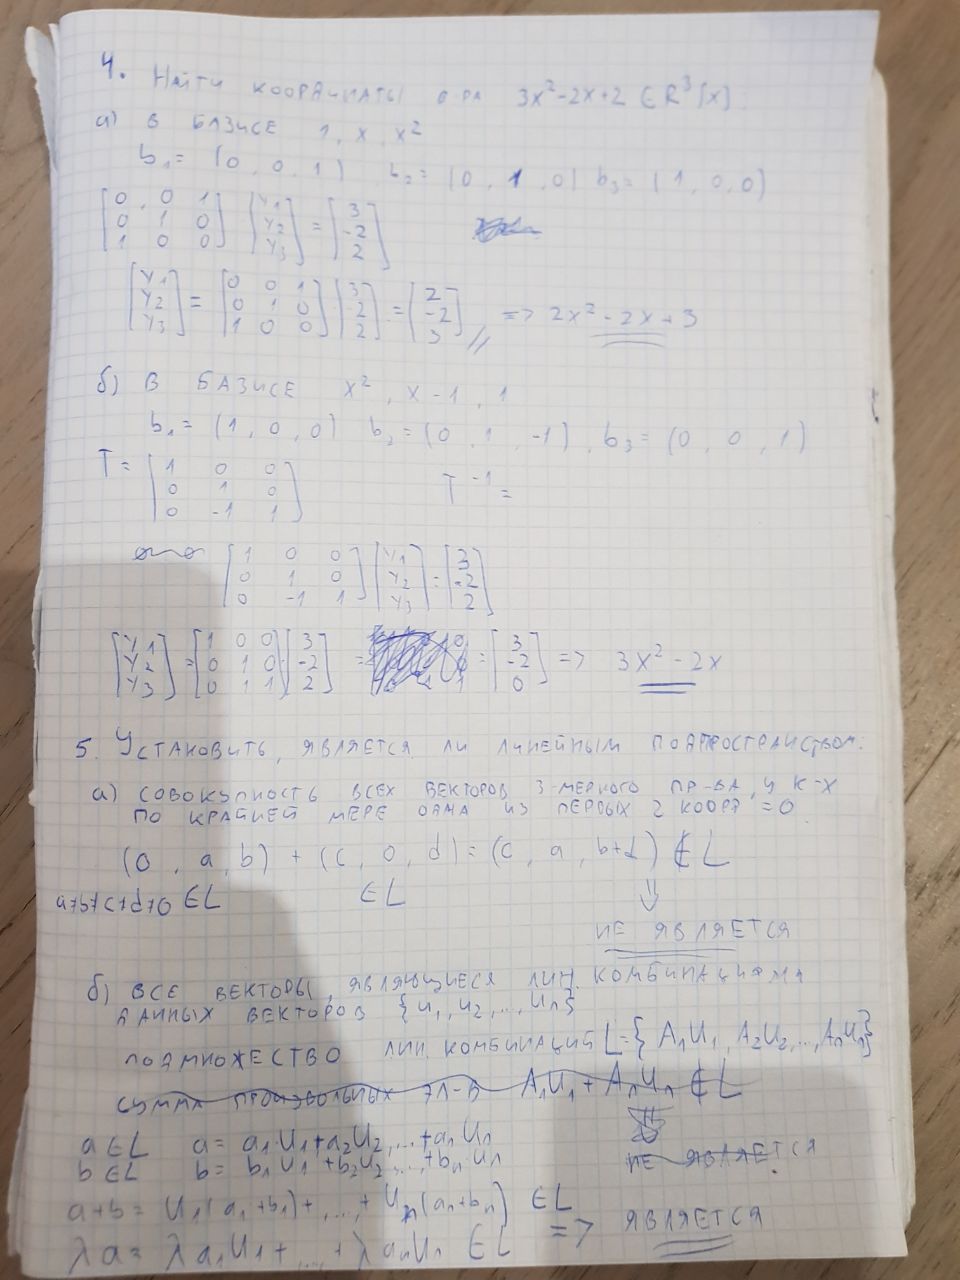 4. Найти координаты в-ра 3x²-2x+2 ∈ R³[x].
а) в базисе 1, x, x²
b₁= (0, 0, 1) b₂= (0, 1, 0) b₃= (1, 0, 0)
[0, 0 1; 0 1 0; 1 0 0] [y₁; y₂; y₃] = [3; -2; 2]
[y₁; y₂; y₃] = [0 0 1; 0 1 0; 1 0 0] · [3; -2; 2] = [2; -2; 3] // => 2x² - 2x + 3
б) в базисе x², x-1, 1
b₁= (1, 0, 0) b₂= (0, 1, -1), b₃= (0, 0, 1)
T= [1 0 0; 0 1 0; 0 -1 1] T⁻¹=
[1 0 0; 0 1 0; 0 -1 1] [y₁; y₂; y₃] = [3; -2; 2]
[y₁; y₂; y₃] = [1 0 0; 0 1 0; 0 1 1] · [3; -2; 2] = [3; -2; 0] => 3x² - 2x
5. Установить, является ли линейным подпространством:
а) совокупность всех векторов 3-мерного пр-ва, у к-х
по крайней мере одна из первых 2 коорд = 0.
(0, a, b) + (c, 0, d) = (c, a, b+d) ∉ L
a≠b≠c≠d≠0 ∈ L ∈ L ⇓
не является
б) все векторы, являющиеся лин. комбинациями
данных векторов {u₁, u₂, ..., uₙ}
подмножество лин. комбинаций L={A₁u₁, A₂u₂, ..., Aₙuₙ}
сумма произвольных эл-в A₁u₁ + Aₙuₙ ∉ L
a ∈ L a= a₁·u₁+a₂u₂, ...+aₙ uₙ
не является
b ∈ L b= b₁·u₁+b₂u₂ ...,+bₙ·uₙ
a+b= u₁(a₁+b₁)+, ...,+ uₙ(aₙ+bₙ) ∈ L
λa= λa₁u₁+, ..., + λaₙuₙ ∈ L => является